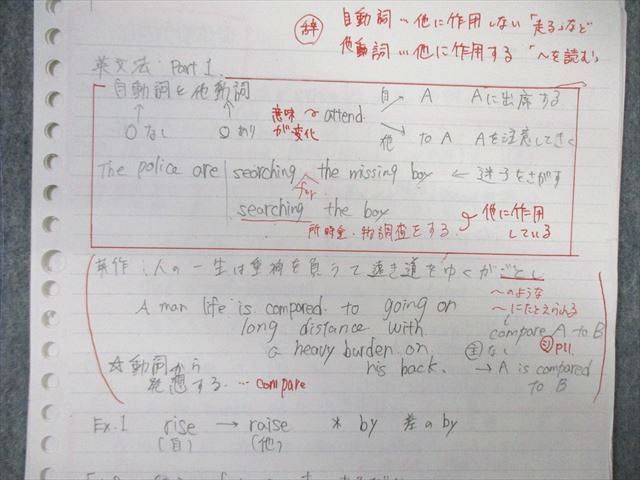 辞 自動詞…他に作用しない「走る」など
他動詞…他に作用する「〜を読む」
英文法:Part 1
自動詞と他動詞
○なし ○あり
意味が変化 attend
自 A Aに出席する
他 to A Aを注意してきく
The police are searching for the missing boy ← 迷子をさがす
searching the boy
所持金・物調査をする
他に作用している
英作:人の一生は重荷を負うて遠き道をゆくがごとし
A man life is compared to going on
long distance with
a heavy burden on
his back.
〜のような
〜にたとえられる
compare A to B
主なし P11.
→ A is compared
to B
☆動詞から
発想する … compare
Ex.1 rise → raise * by 差のby
(自) (他)